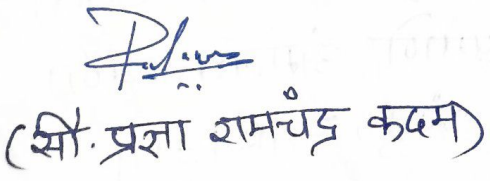 (सौ. प्रज्ञा रामचंद्र कदम)